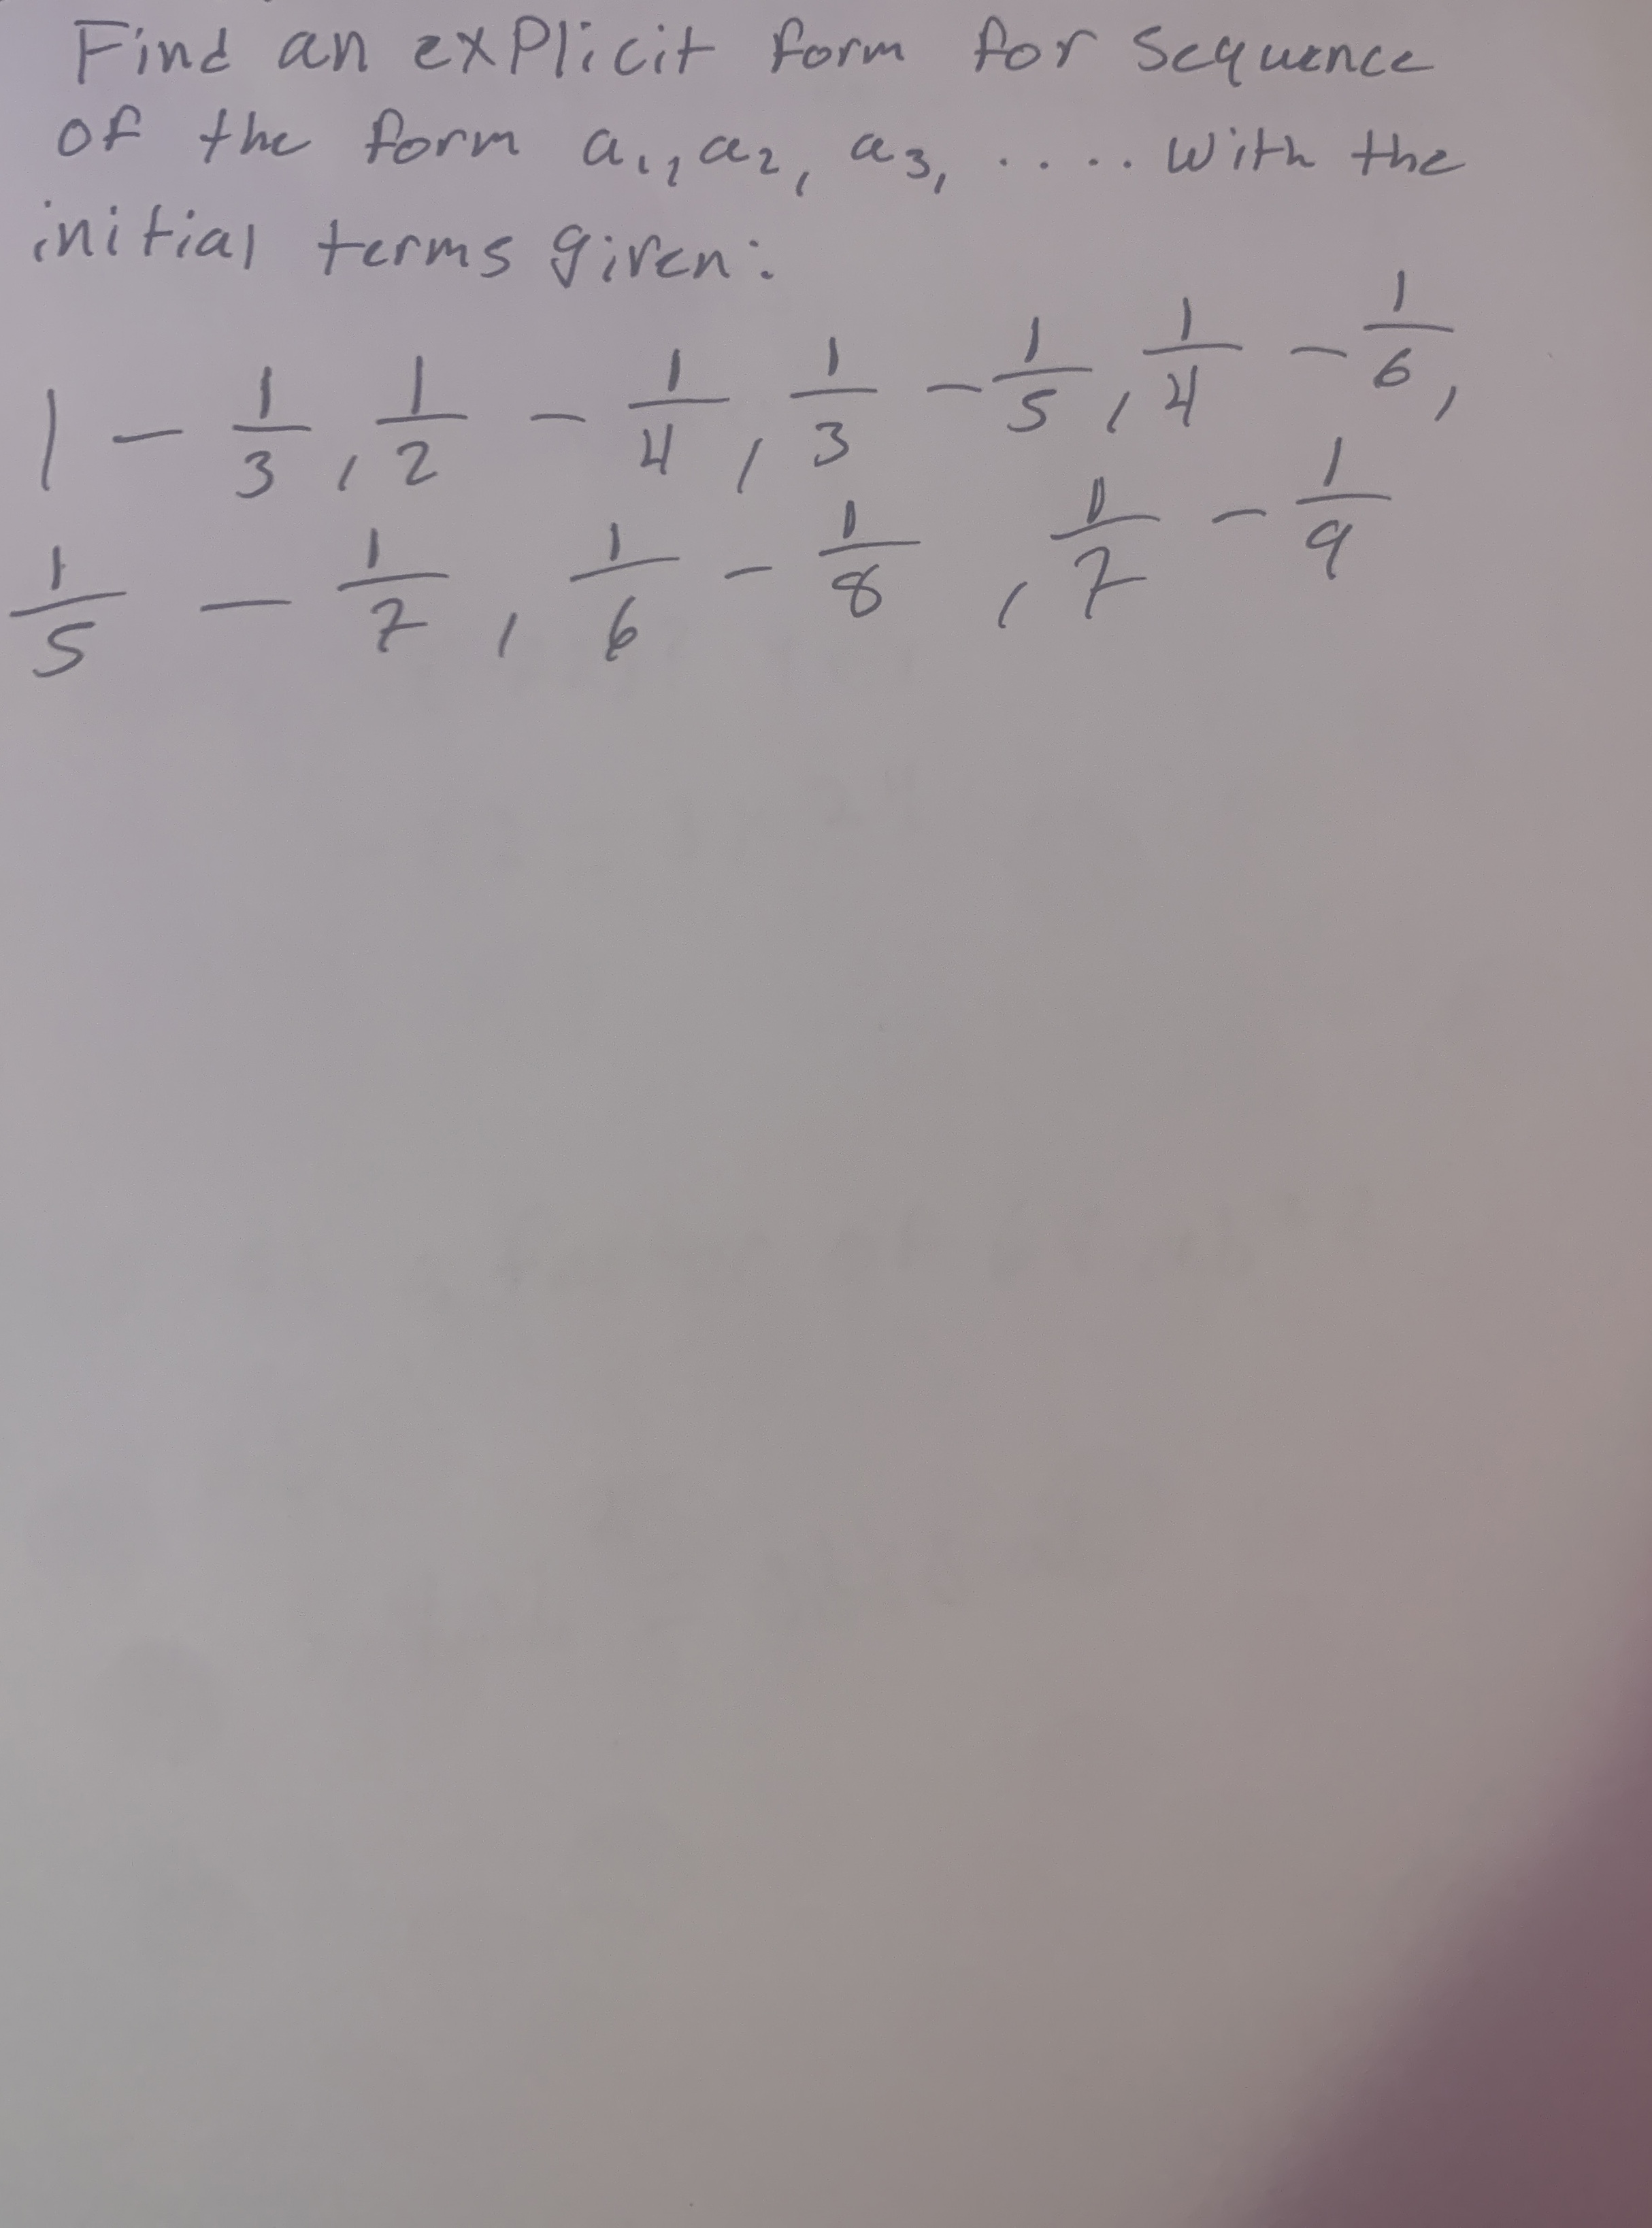 Find an explicit form for sequence
of the form a₁, a₂, a₃, ..... with the
initial terms given:
1 - 1/3, 1/2 - 1/4, 1/3 - 1/5, 1/4 - 1/6,
1/5 - 1/7, 1/6 - 1/8, 1/7 - 1/9